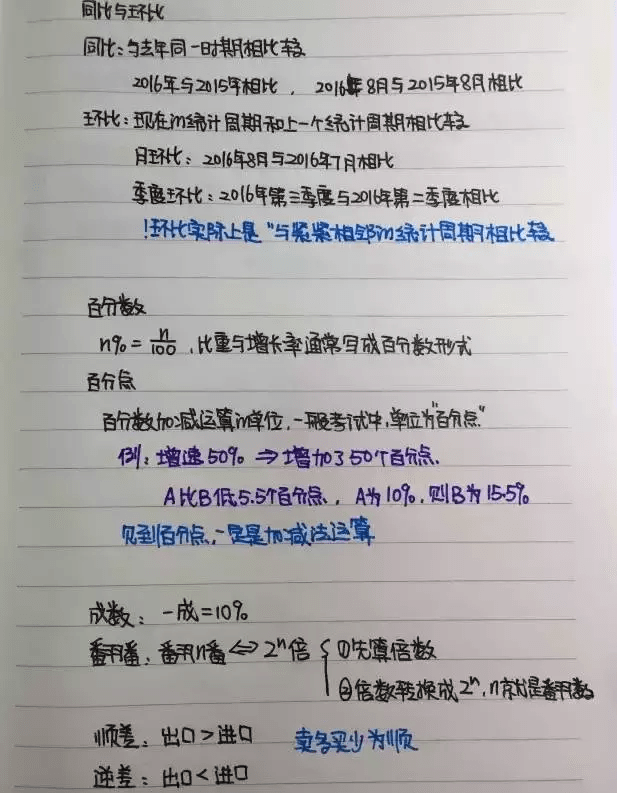 同比与环比
同比：与去年同一时期相比较
2016年与2015年相比，2016年8月与2015年8月相比
环比：现在的统计周期和上一个统计周期相比较
月环比：2016年8月与2016年7月相比
季度环比：2016年第三季度与2016年第二季度相比
！环比实际上是“与紧紧相邻的统计周期相比较
百分数
n%=n/100，比重与增长率通常写成百分数形式
百分点
百分数加减运算的单位，一般考试中，单位为“百分点”
例：增速50% ⇒ 增加了50个百分点.
A比B低5.5个百分点，A为10%，则B为15.5%
见到百分点，一定是加减法运算
成数：一成=10%
翻番：翻n番 ⇔ 2ⁿ倍 { ①先算倍数
②倍数转换成2ⁿ，n就是翻番数
顺差：出口>进口 卖多买少为顺
逆差：出口<进口